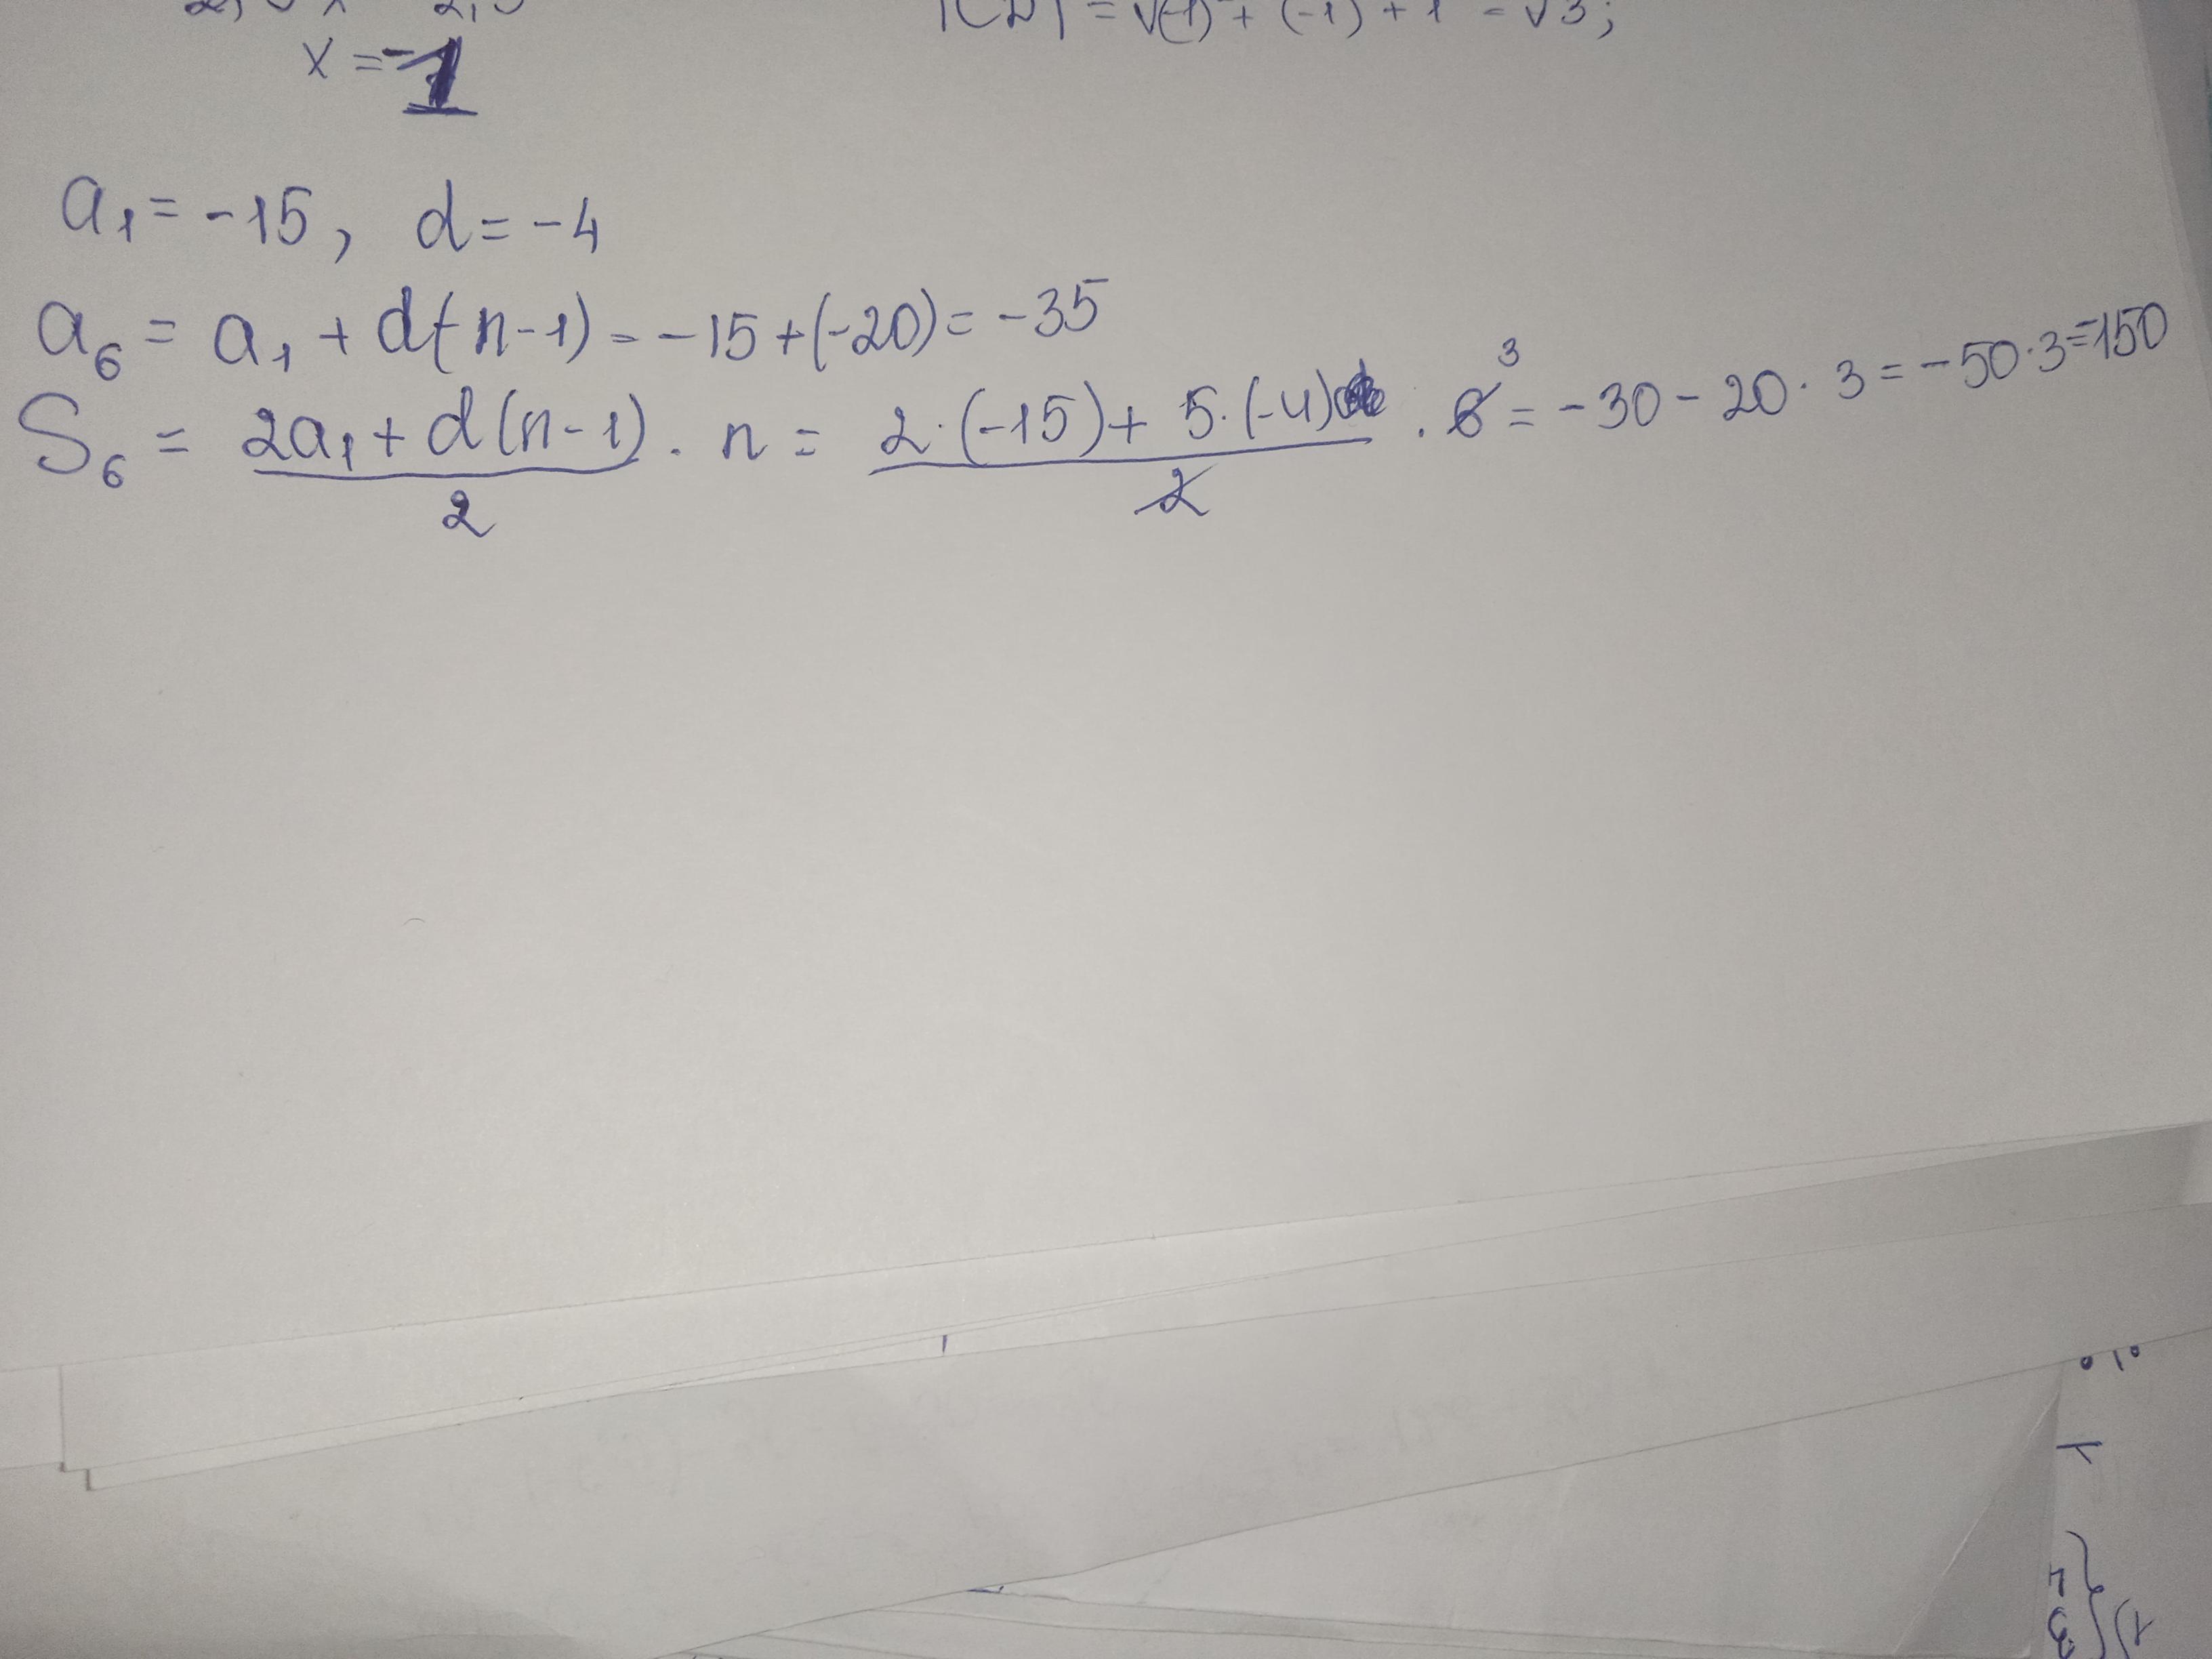 |CD| = √(-1) + (-1) + 1 = √3;
x = -1
a₁ = -15, d = -4
a₆ = a₁ + d(n-1) = -15 + (-20) = -35
S₆ = 2a₁ + d(n-1) / 2 · n = 2·(-15) + 5·(-4) / 2 · 6 ³ = -30 - 20 · 3 = -50 · 3 = -150